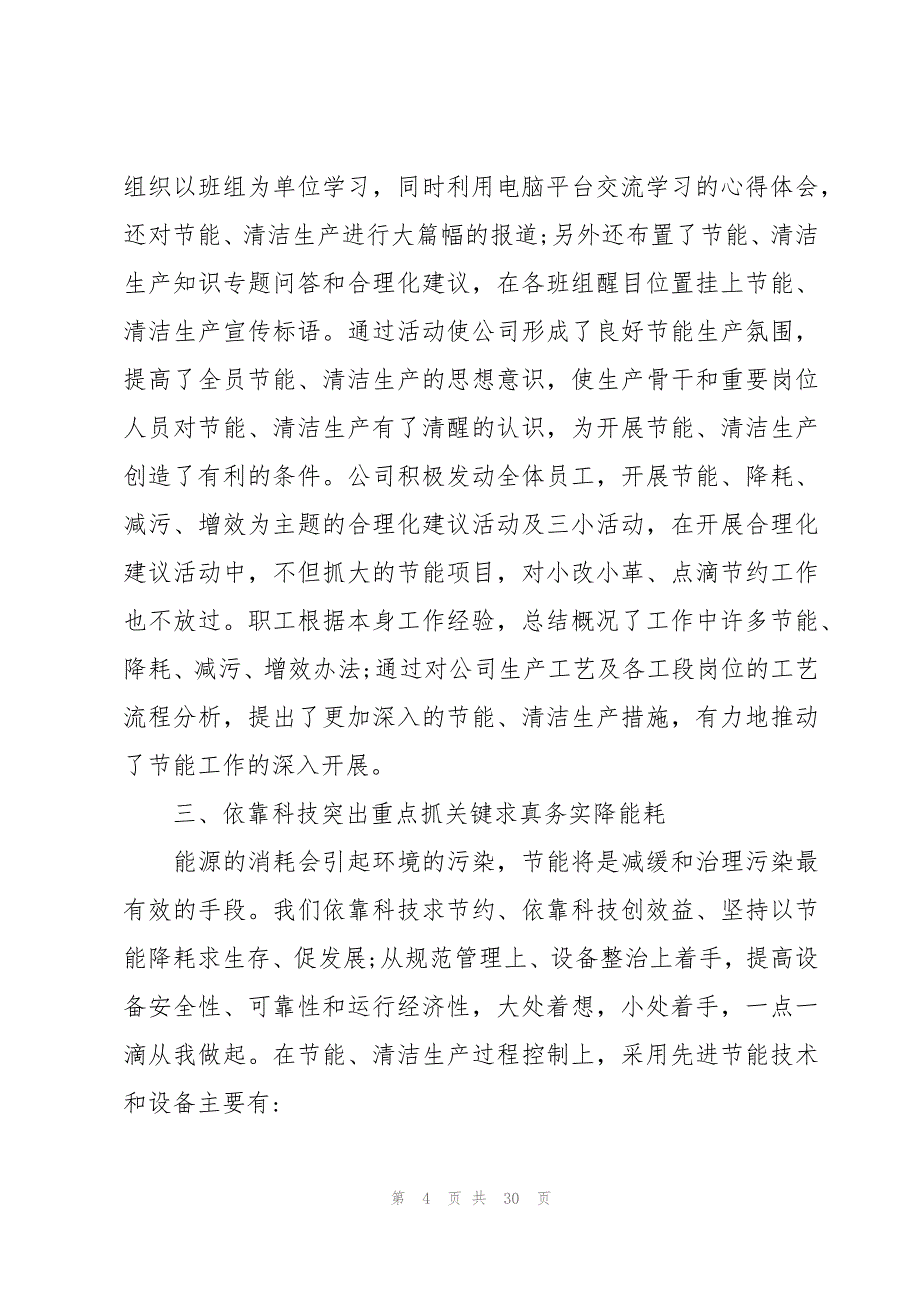 组织以班组为单位学习，同时利用电脑平台交流学习的心得体会，
还对节能、清洁生产进行大篇幅的报道;另外还布置了节能、清洁
生产知识专题问答和合理化建议，在各班组醒目位置挂上节能、
清洁生产宣传标语。通过活动使公司形成了良好节能生产氛围，
提高了全员节能、清洁生产的思想意识，使生产骨干和重要岗位
人员对节能、清洁生产有了清醒的认识，为开展节能、清洁生产
创造了有利的条件。公司积极发动全体员工，开展节能、降耗、
减污、增效为主题的合理化建议活动及三小活动，在开展合理化
建议活动中，不但抓大的节能项目，对小改小革、点滴节约工作
也不放过。职工根据本身工作经验，总结概况了工作中许多节能、
降耗、减污、增效办法;通过对公司生产工艺及各工段岗位的工艺
流程分析，提出了更加深入的节能、清洁生产措施，有力地推动
了节能工作的深入开展。
三、依靠科技突出重点抓关键求真务实降能耗
能源的消耗会引起环境的污染，节能将是减缓和治理污染最
有效的手段。我们依靠科技求节约、依靠科技创效益、坚持以节
能降耗求生存、促发展;从规范管理上、设备整治上着手，提高设
备安全性、可靠性和运行经济性，大处着想，小处着手，一点一
滴从我做起。在节能、清洁生产过程控制上，采用先进节能技术
和设备主要有:
第 4 页 共 30 页